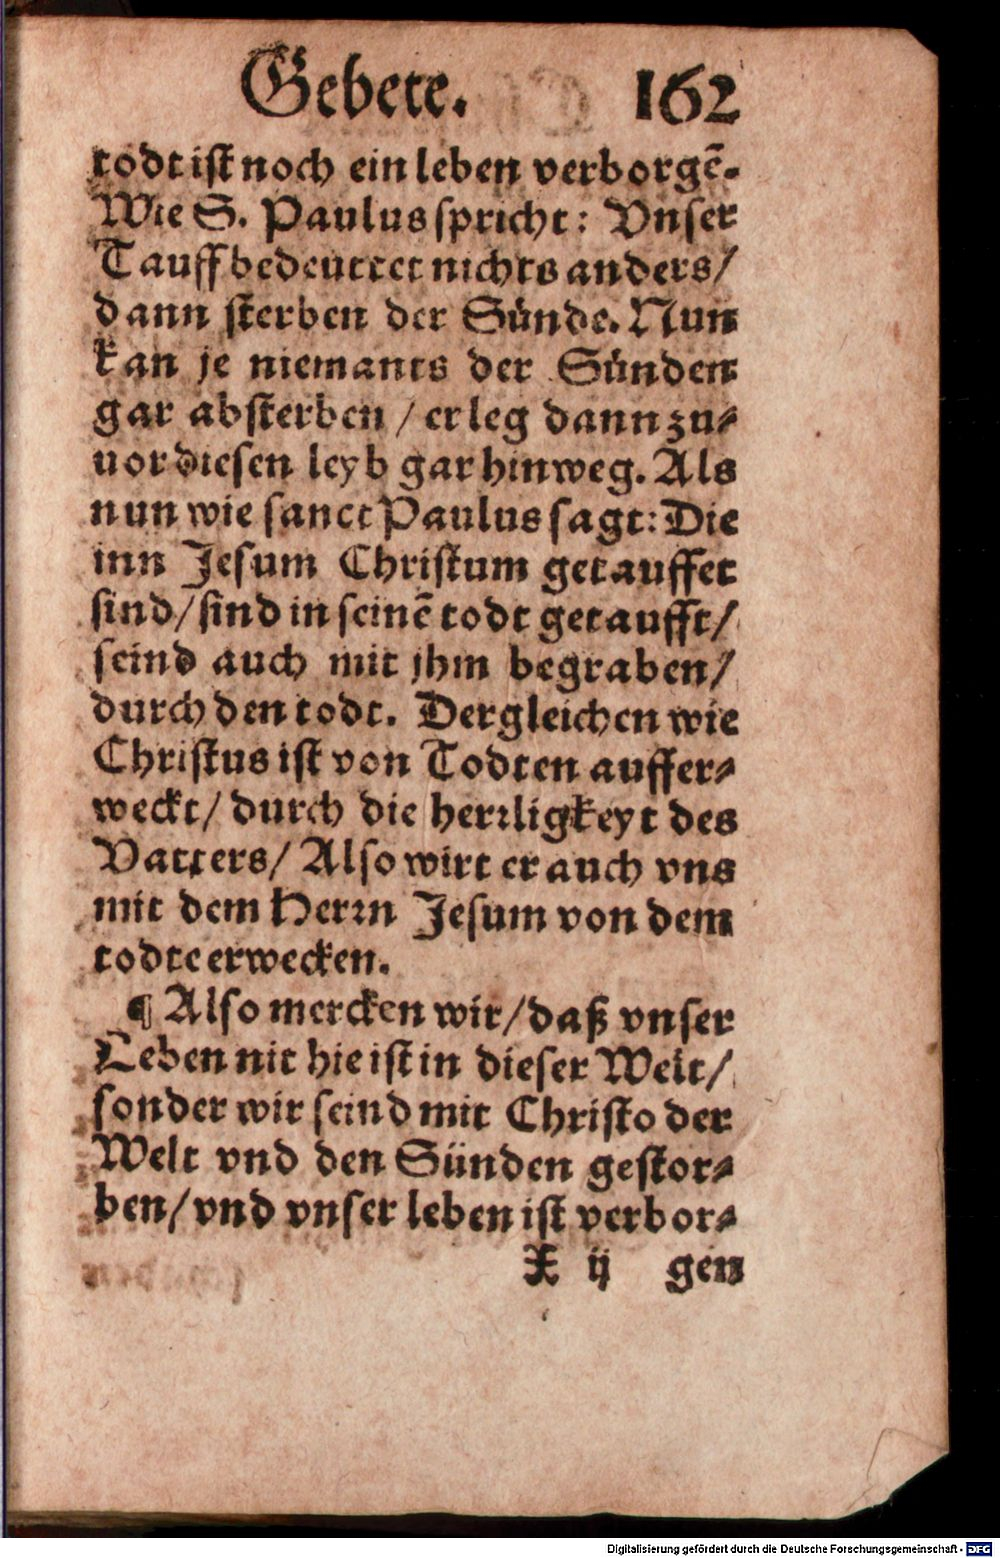 Gebete. 162
todt ist noch ein leben verborgē.
Wie S. Paulus spricht: Vnser
Tauff bedeuttet nichts anders/
dann sterben der Sünde. Nun
kan je niemants der Sünden
gar absterben / er leg dann zu⸗
uor diesen leyb gar hinweg. Als
nun wie sanct Paulus sagt: Die
inn Jesum Christum getauffet
sind/ sind in seinē todt getaufft/
seind auch mit jhm begraben/
durch den todt. Dergleichen wie
Christus ist von Todten auffer⸗
weckt/ durch die herrligkeyt des
Vatters/ Also wirt er auch vns
mit dem Herrn Jesum von dem
todte erwecken.
¶ Also mercken wir/ daß vnser
Leben nit hie ist in dieser Welt/
sonder wir seind mit Christo der
Welt vnd den Sünden gestor⸗
ben/ vnd vnser leben ist verbor⸗
X ij gen
Digitalisierung gefördert durch die Deutsche Forschungsgemeinschaft - DFG